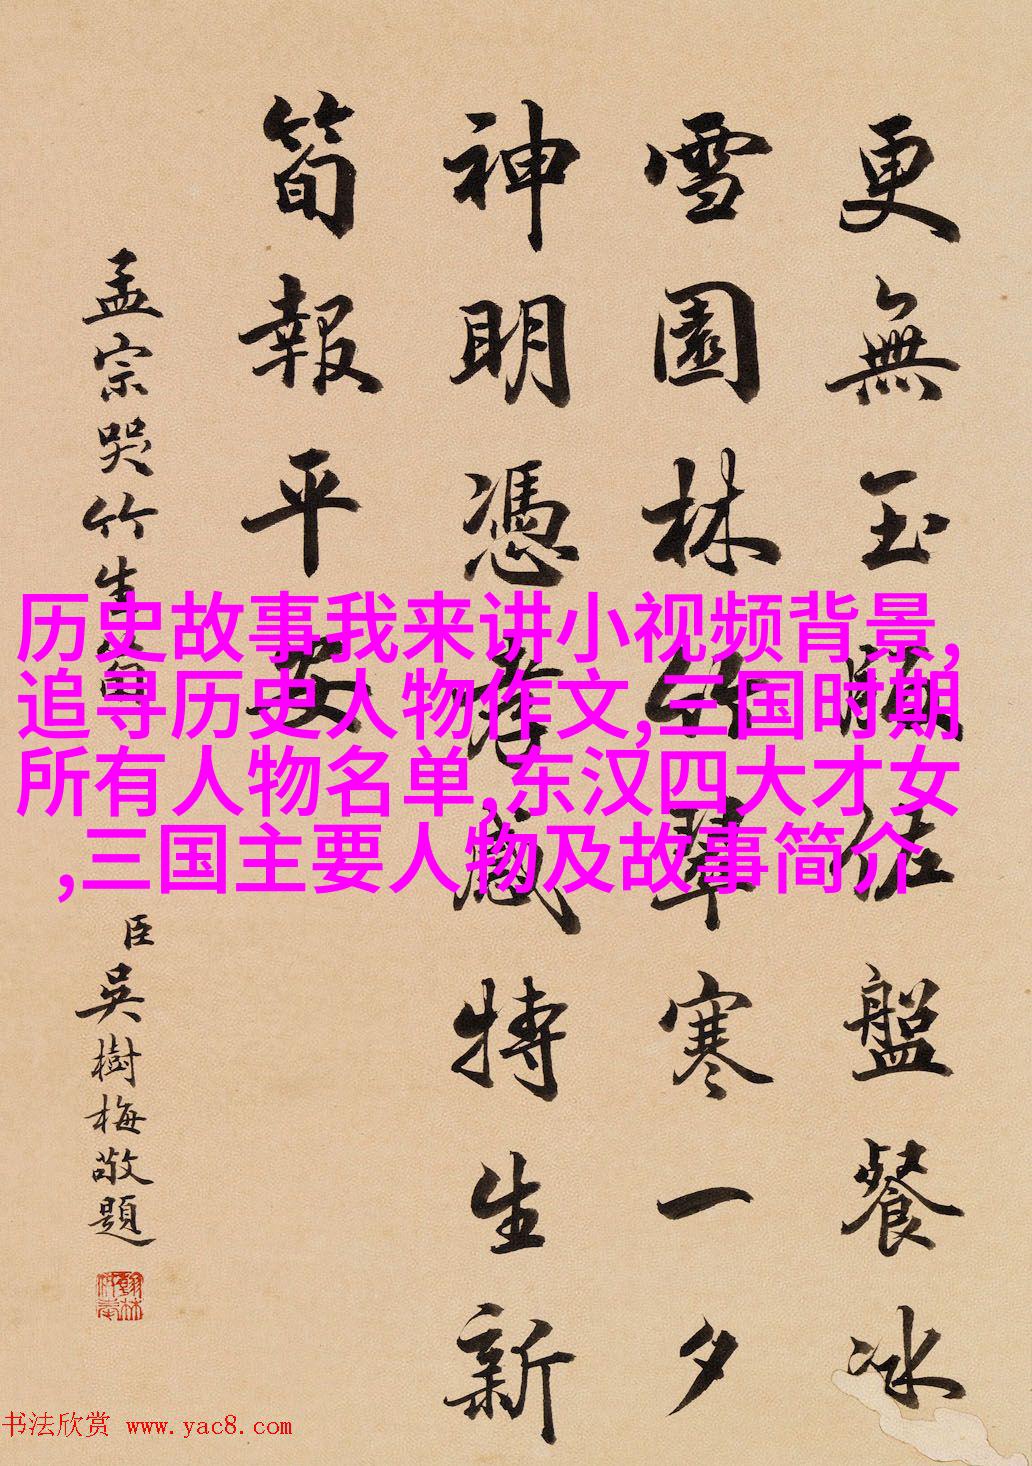 更無玉佐盤餐冰
雪園林竹翠寒一夕
神明憑孝感特生新
筍報平安
孟宗哭竹生筍
臣吳樹梅敬題
历史故事我来讲小视频背景,
追寻历史人物作文,三国时期
所有人物名单,东汉四大才女
,三国主要人物及故事简介
书法欣赏 www.yac8.com